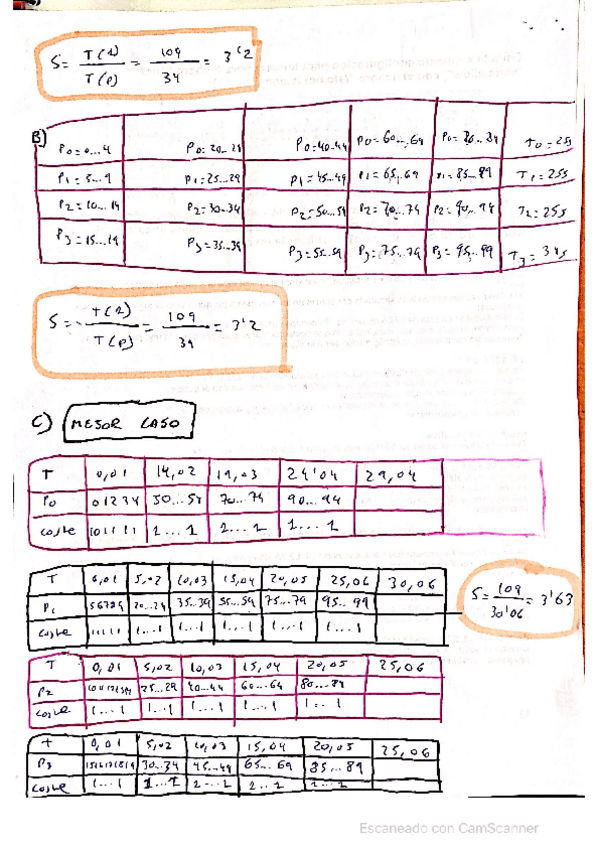 S= T(1) / T(P) = 109 / 34 = 3'2
B)
P0=0...4 P0=20...24 P0=40-44 P0=60...64 P0=80...84 T0=25s
P1=5...9 P1=25...29 P1=45...49 P1=65..69 P1=85...89 T1=25s
P2=10...14 P2=30...34 P2=50...54 P2=70...74 P2=90...94 T2=25s
P3=15...19 P3=35...39 P3=55...59 P3=75...79 P3=95...99 T3=34s
S= T(1) / T(P) = 109 / 34 = 3'2
C) MEJOR CASO
T 0,01 14,02 19,03 24'04 29,04
P0 01234 50...54 70...74 90...94
coste 101111 1...1 1...1 1...1
T 0,01 5,02 10,03 15,04 20,05 25,06 30,06
P1 56789 20...24 35...39 55...59 75...79 95...99
coste 11111 1...1 1...1 1...1 1...1 1...1
S= 109 / 30'06 = 3'63
T 0,01 5,02 10,03 15,04 20,05 25,06
P2 25...29 40...44 60...64 80...84
coste 1...1 1...1 1...1 1...1 1...1
T 0,01 5,02 10,03 15,04 20,05 25,06
P3 1516171819 30...34 45...49 65...69 85...89
coste 1...1 1...1 1...1 1...1 1...1
Escaneado con CamScanner